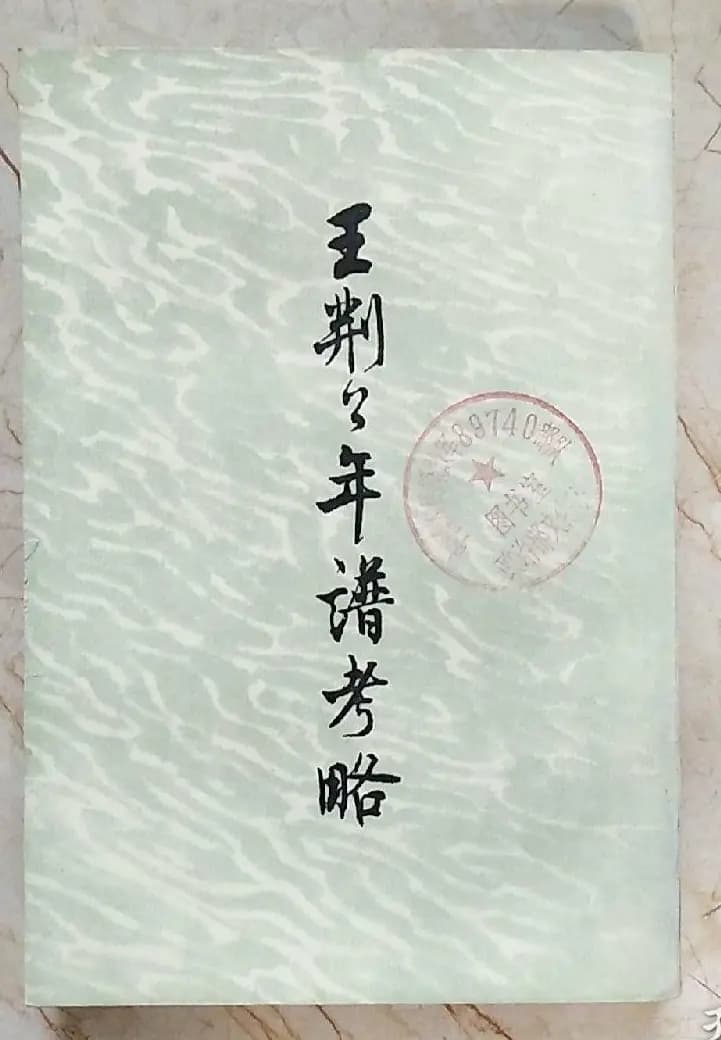 王荆公年谱考略
89740部队
图书室